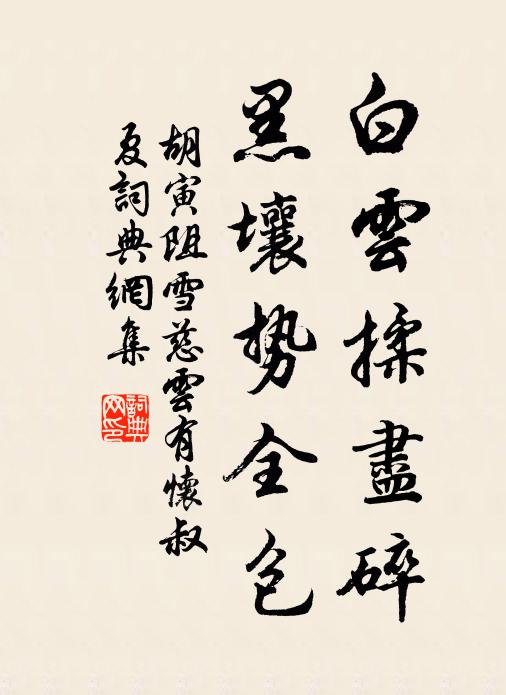 白雲揉盡碎
黑壤势全包
胡寅阻雪慈雲有懷叔
夏詞典網集
詞典
网印